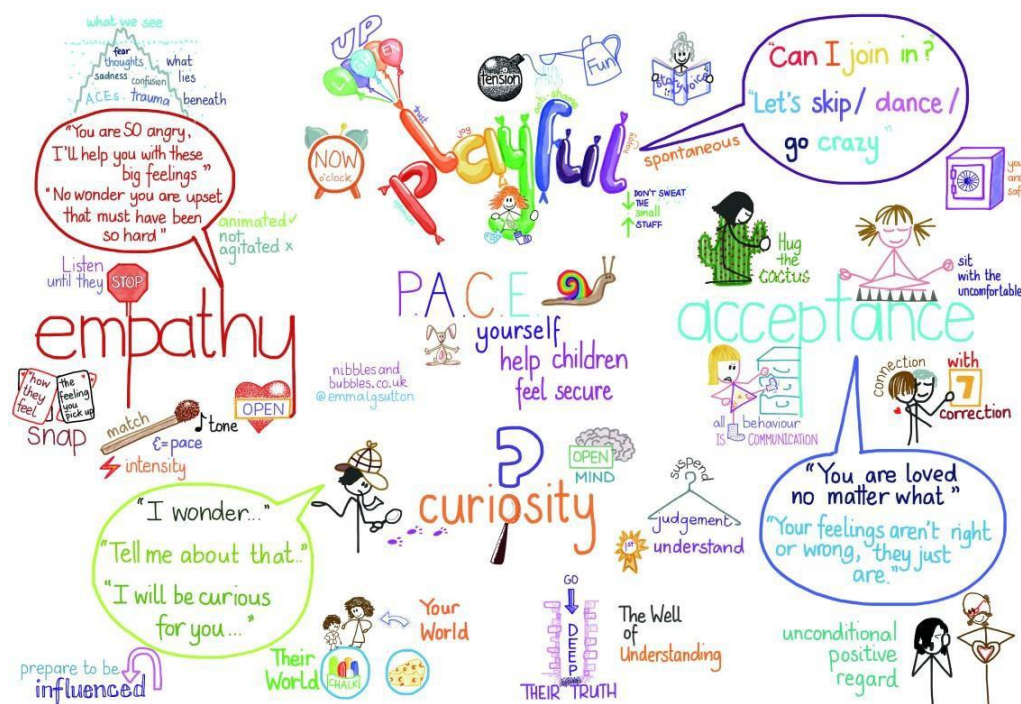 what we see
fear
thoughts
sadness confusion
ACEs trauma
what
lies
beneath
"You are SO angry,
I'll help you with these
big feelings"
"No wonder you are upset
that must have been
so hard"
animated ✓
not
agitated x
Listen
until they STOP
empathy
"how
they
feel
the
feeling
you
pick up
snap
match
tone
£=pace
intensity
OPEN
UP
NOW
o'clock
playful
joy
tension
Fun
story voice
spontaneous
happy
DON'T SWEAT
THE
small
STUFF
"Can I join in?"
"Let's skip / dance /
go crazy"
you
are
safe
Hug
the
cactus
sit
with the
uncomfortable
P.A.C.E.
yourself
help children
feel secure
nibbles and
bubbles.co.uk
@emmalgsutton
acceptance
all behaviour
IS COMMUNICATION
connection
with
7
correction
"You are loved
no matter what"
"Your feelings aren't right
or wrong, "they just
are."
unconditional
positive
regard
?
curiosity
OPEN
MIND
suspend
judgement
1st understand
"I wonder..."
"Tell me about that.."
"I will be curious
for you..."
prepare to be
influenced
Your
World
Their
World
CHALK
GO
DEEP
THEIR TRUTH
The Well
of
Understanding